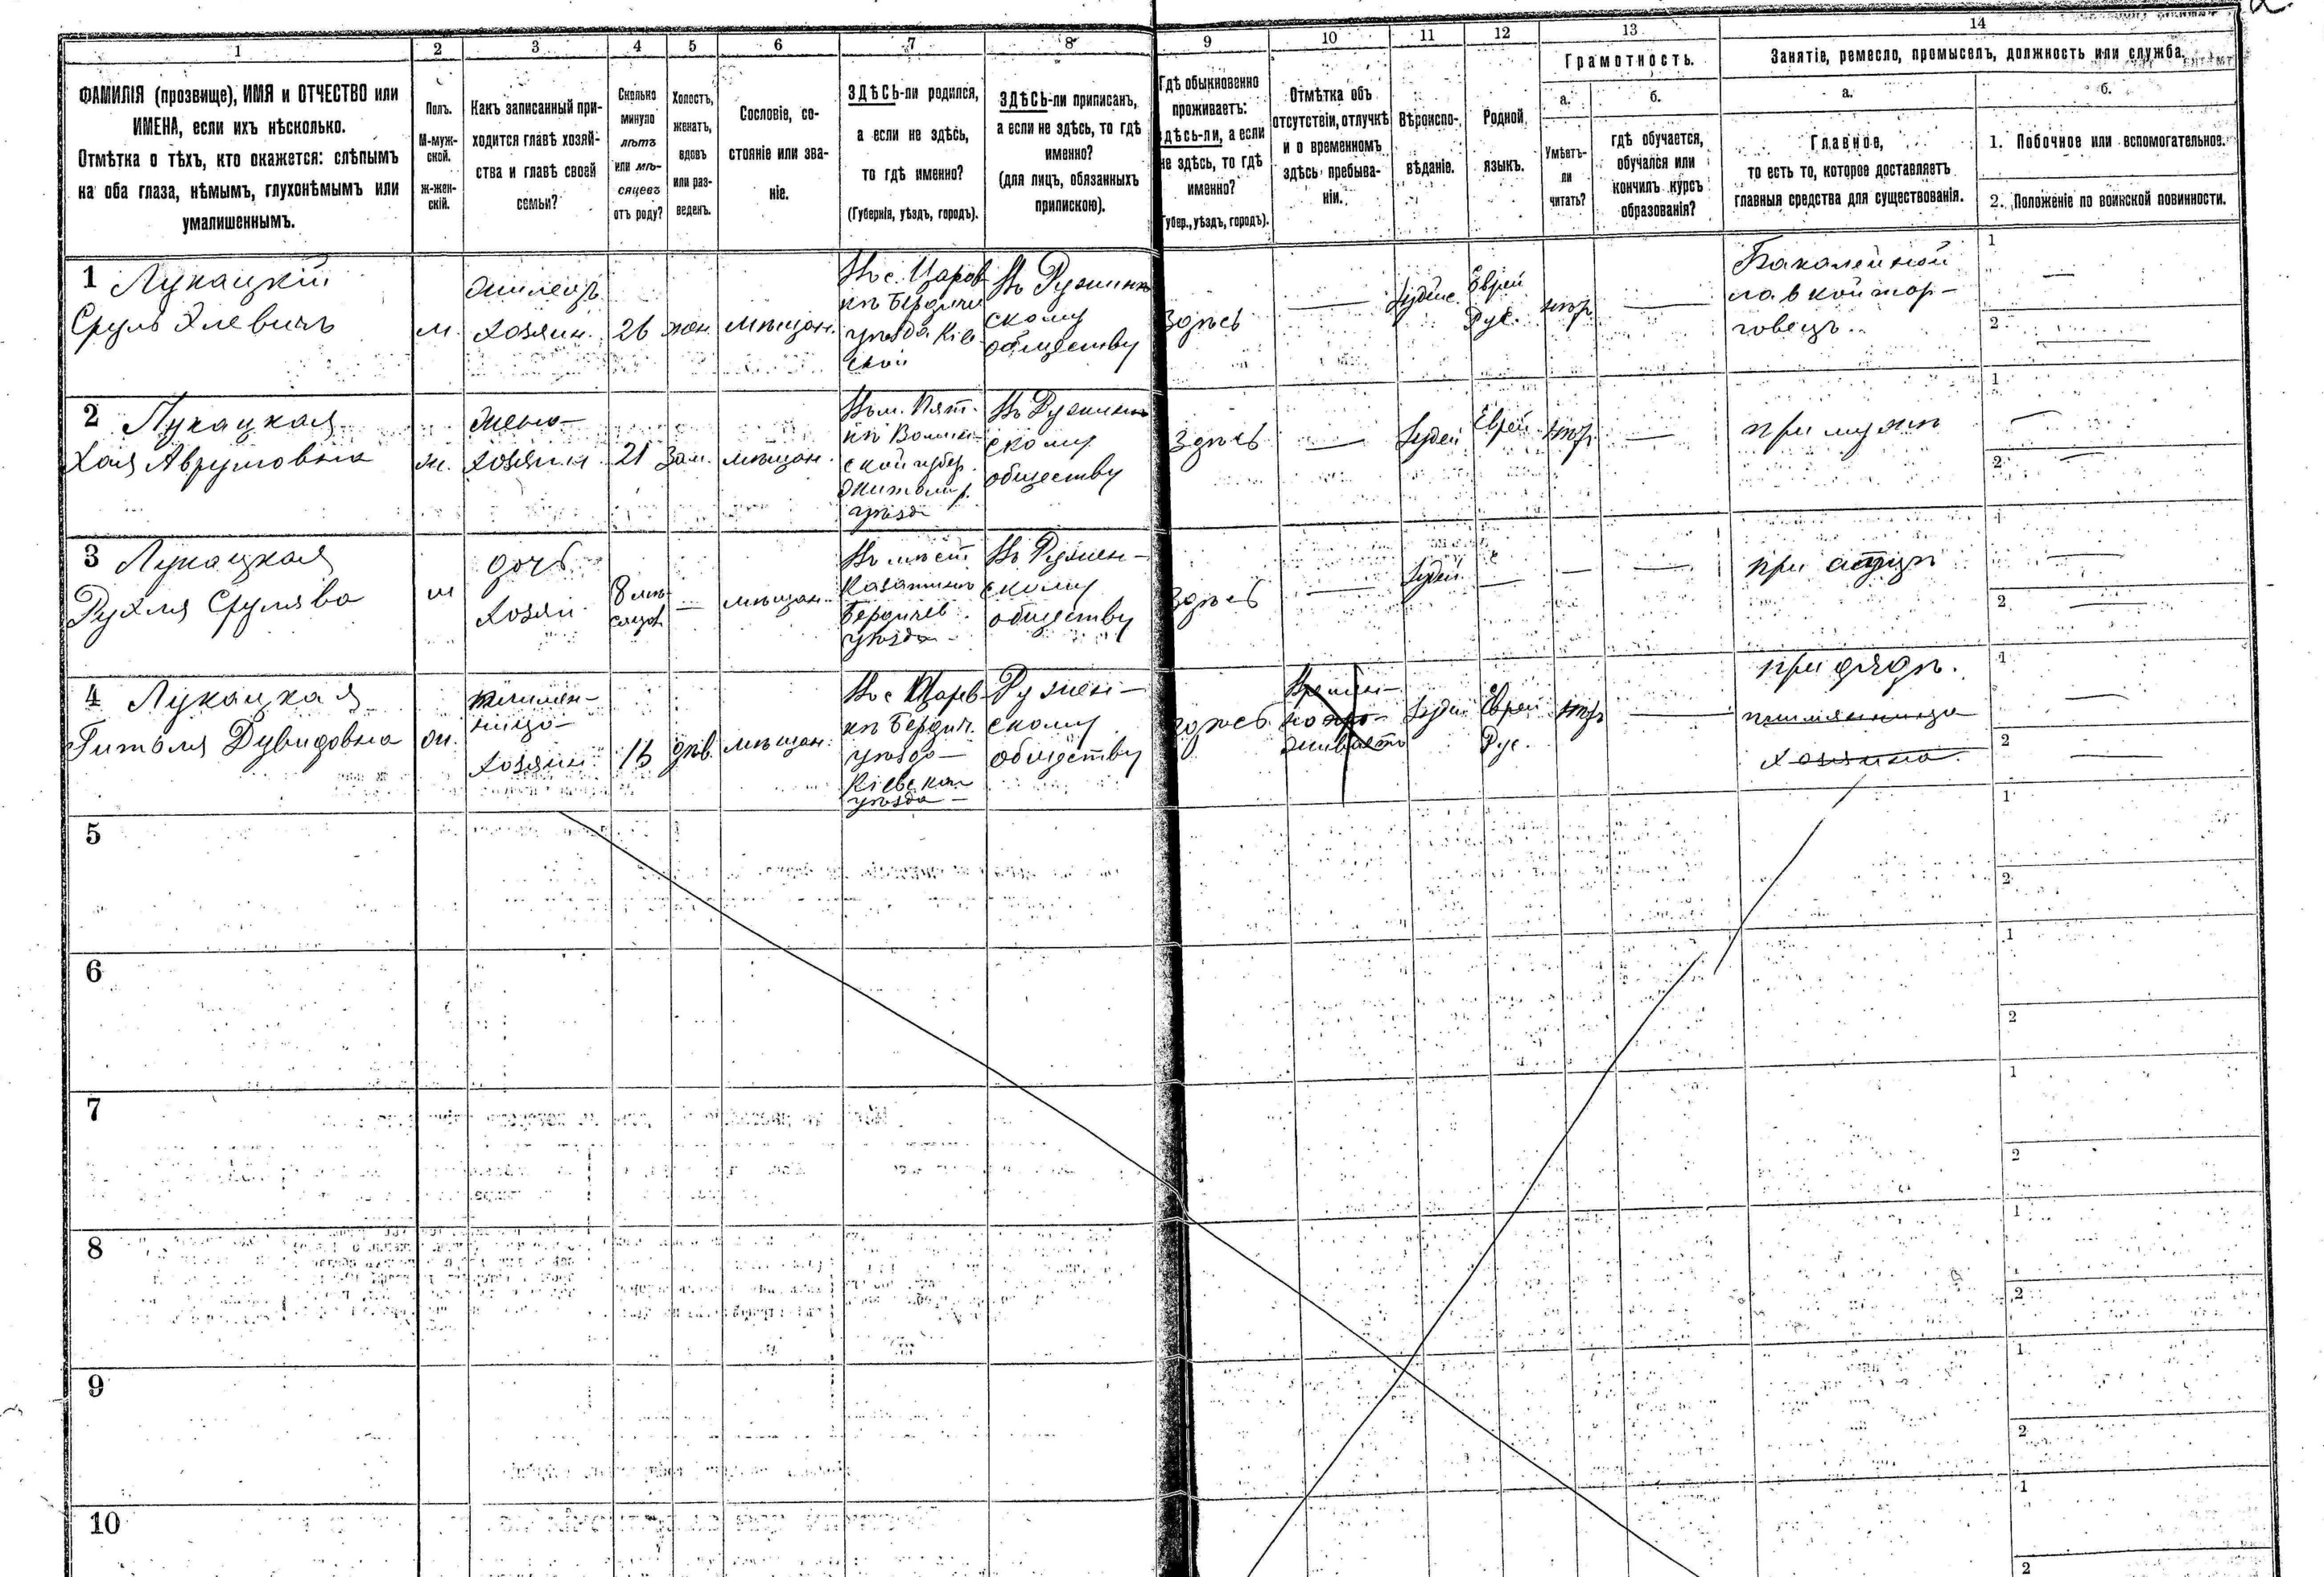 1 2 3 4 5 6 7 8 9 10 11 12 13 14
ФАМИЛІЯ (прозвище), ИМЯ и ОТЧЕСТВО или
ИМЕНА, если ихъ нѣсколько.
Отмѣтка о тѣхъ, кто окажется: слѣпымъ
на оба глаза, нѣмымъ, глухонѣмымъ или
умалишеннымъ.
Полъ.
М-муж-
ской.
ж-жен-
скій.
Какъ записанный при-
ходится главѣ хозяй-
ства и главѣ своей
семьи?
Сколько
минуло
лѣтъ
или мѣ-
сяцевъ
отъ роду?
Холостъ,
женатъ,
вдовъ
или раз-
веденъ.
Сословіе, со-
стояніе или зва-
ніе.
ЗДѢСЬ-ли родился,
а если не здѣсь,
то гдѣ именно?
(Губернія, уѣздъ, городъ).
ЗДѢСЬ-ли приписанъ,
а если не здѣсь, то гдѣ
именно?
(для лицъ, обязанныхъ
припискою).
Гдѣ обыкновенно
проживаетъ:
здѣсь-ли, а если
не здѣсь, то гдѣ
именно?
(Губер., уѣздъ, городъ).
Отмѣтка объ
отсутствіи, отлучкѣ
и о временномъ
здѣсь пребыва-
ніи.
Вѣроиспо-
вѣданіе.
Родной
языкъ.
Грамотность.
а.
Умѣетъ-
ли
читать?
б.
гдѣ обучается,
обучался или
кончилъ курсъ
образованія?
Занятіе, ремесло, промыселъ, должность или служба.
а.
Главное,
то есть то, которое доставляетъ
главныя средства для существованія.
б.
1. Побочное или вспомогательное.
2. Положеніе по воинской повинности.
1 Лукацкій
Сруль Хлевичъ
м.
хозяин.
26
жен.
мѣщан.
Въ с. Царов
кѣ Бердичев
уѣзда Кіев
ской
обществу
скому
Здѣсь
Іудейс.
Еврей
Рус.
Бакалейной
лавкой тор-
говецъ.
1
2
2 Лукацкая
Хая Аврумовна
ж.
жена
хозяин.
21
зам.
мѣщан.
Въ м. Пят.
кѣ Волын-
ской губер.
Житомир.
уѣзд
скому
обществу
здѣсь
Іудей
Еврей
при мужѣ
1
2
3 Лукацкая
Рухля Срулява
дочь
хозяи
8 мѣ
сяцов
—
мѣщан.
Въ мѣст
Казатинъ
Бердичев
уѣзда
скому
обществу
здѣсь
Іудей
при атцѣ
1
2
4 Лукацкая
Гитля Дувидовна
племян-
ница
хозяин
13
дѣв.
мѣщан.
Въ с Царев-
кѣ Бердич.
уѣзда
Кіевская
уѣзда
Ружен-
скому
обществу
здѣсь
Времен-
но про-
живаетъ
Іудей
Еврей
Рус.
при дядѣ.
племянница
хозяина.
1
2
5
1
2
6
1
2
7
1
2
8
1
2
9
1
2
10
1
2